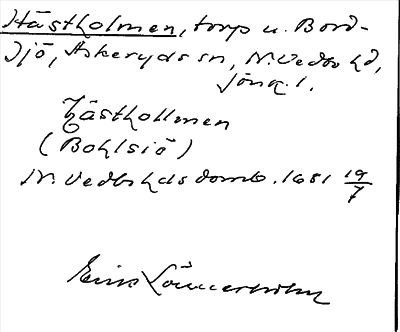 Hästholmen, torp u. Bord-
sjö, Askeryds sn, N. Vedbo hd,
Jönk. l.
Hästhollmen
(Bohlsiö)
N. Vedbo hds domb. 1681 19/7
Erik Lönnerholm